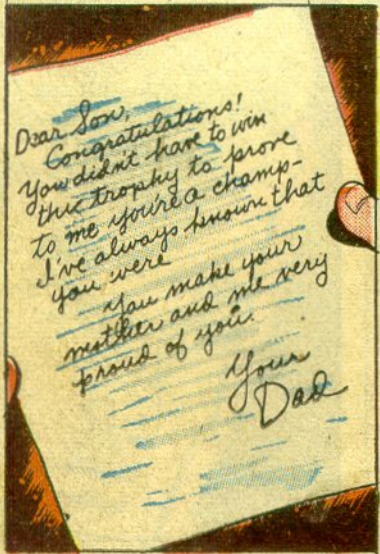 Dear Son,
Congratulations!
You didn't have to win
this trophy to prove
to me you're a champ-
I've always known that
you were
You make your
mother and me very
proud of you.
Your
Dad